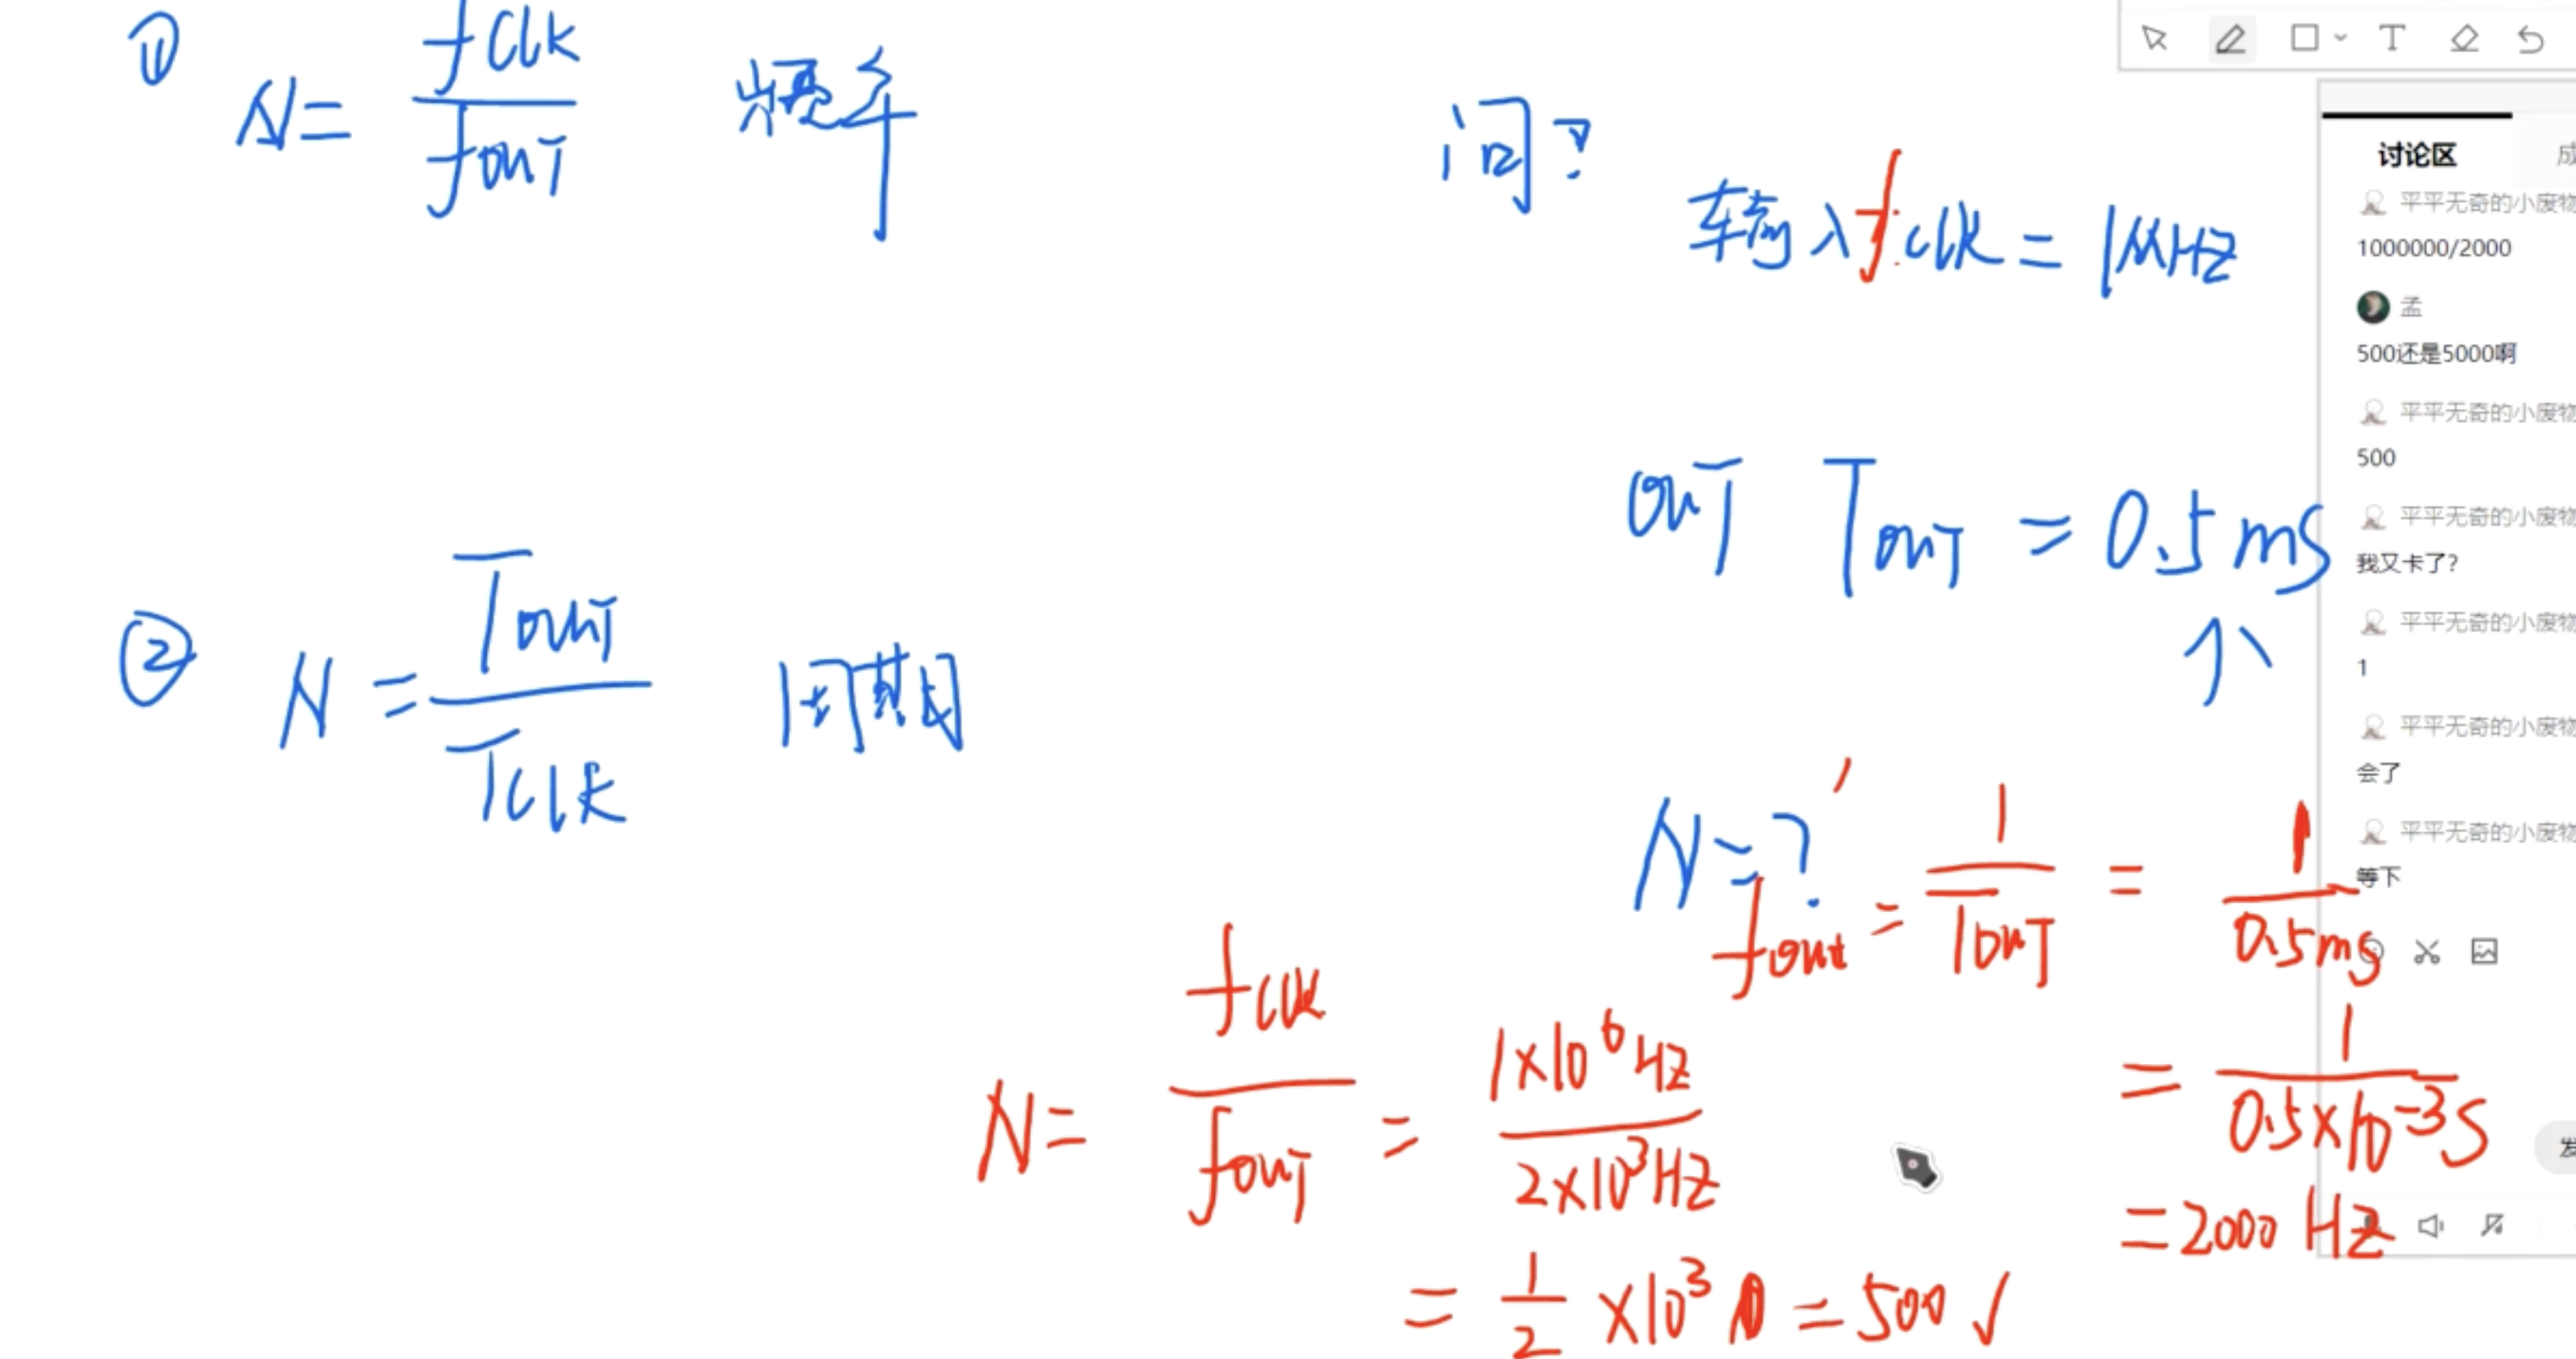 ①
N = fclk / fouT 频率
② N = TouT / Tclk 周期
问?
输入 fclk = 1MHZ
ouT TouT = 0.5ms
N=?
fout = 1 / TouT = 1 / 0.5ms
= 1 / 0.5×10⁻³S
= 2000 HZ
N = fclk / fouT = 1×10⁶HZ / 2×10³HZ
= 1/2 ×10³ = 500 √
T
讨论区
成
平平无奇的小废物
1000000/2000
孟
500还是5000啊
平平无奇的小废物
500
平平无奇的小废物
我又卡了?
平平无奇的小废物
1
平平无奇的小废物
会了
平平无奇的小废物
等下
发